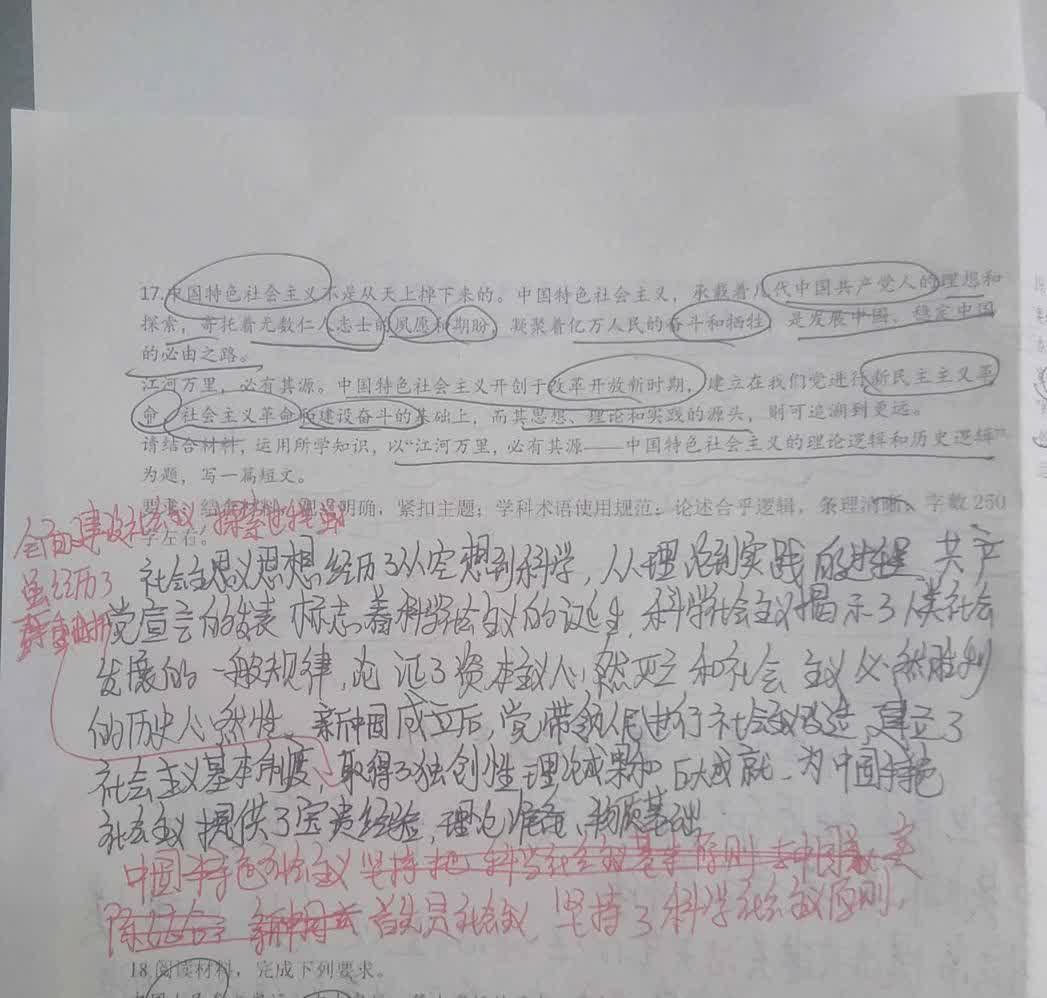 17.中国特色社会主义不是从天上掉下来的。中国特色社会主义,承载着几代中国共产党人的理想和
探索,寄托着无数仁人志士的夙愿和期盼,凝聚着亿万人民的奋斗和牺牲,是发展中国、稳定中国
的必由之路。
江河万里,必有其源。中国特色社会主义开创于改革开放新时期,建立在我们党进行新民主主义革
命、社会主义革命和建设奋斗的基础上,而其思想、理论和实践的源头,则可追溯到更远。
请结合材料,运用所学知识,以“江河万里,必有其源——中国特色社会主义的理论逻辑和历史逻辑”
为题,写一篇短文。
要求:结合材料,明确,紧扣主题;学科术语使用规范;论述合乎逻辑,条理清晰。字数 250
字左右。
全面建设社会主义探索
虽经历了
曲折
社会主义思想经历了从空想到科学,从理论到实践的进程,共产
党宣言的发表标志着科学社会主义的诞生,科学社会主义揭示了人类社会
发展的一般规律,论证了资本主义必然灭亡和社会主义必然胜利
的历史必然性。新中国成立后,党带领人民进行社会主义改造,建立了
社会主义基本制度,取得了独创性理论成果和巨大成就,为中国特色
社会主义提供了宝贵经验,理论准备,物质基础
中国特色社会主义坚持把科学社会主义基本原则
首先是社会主义,坚持了科学社会主义原则,
18.阅读材料,完成下列要求。